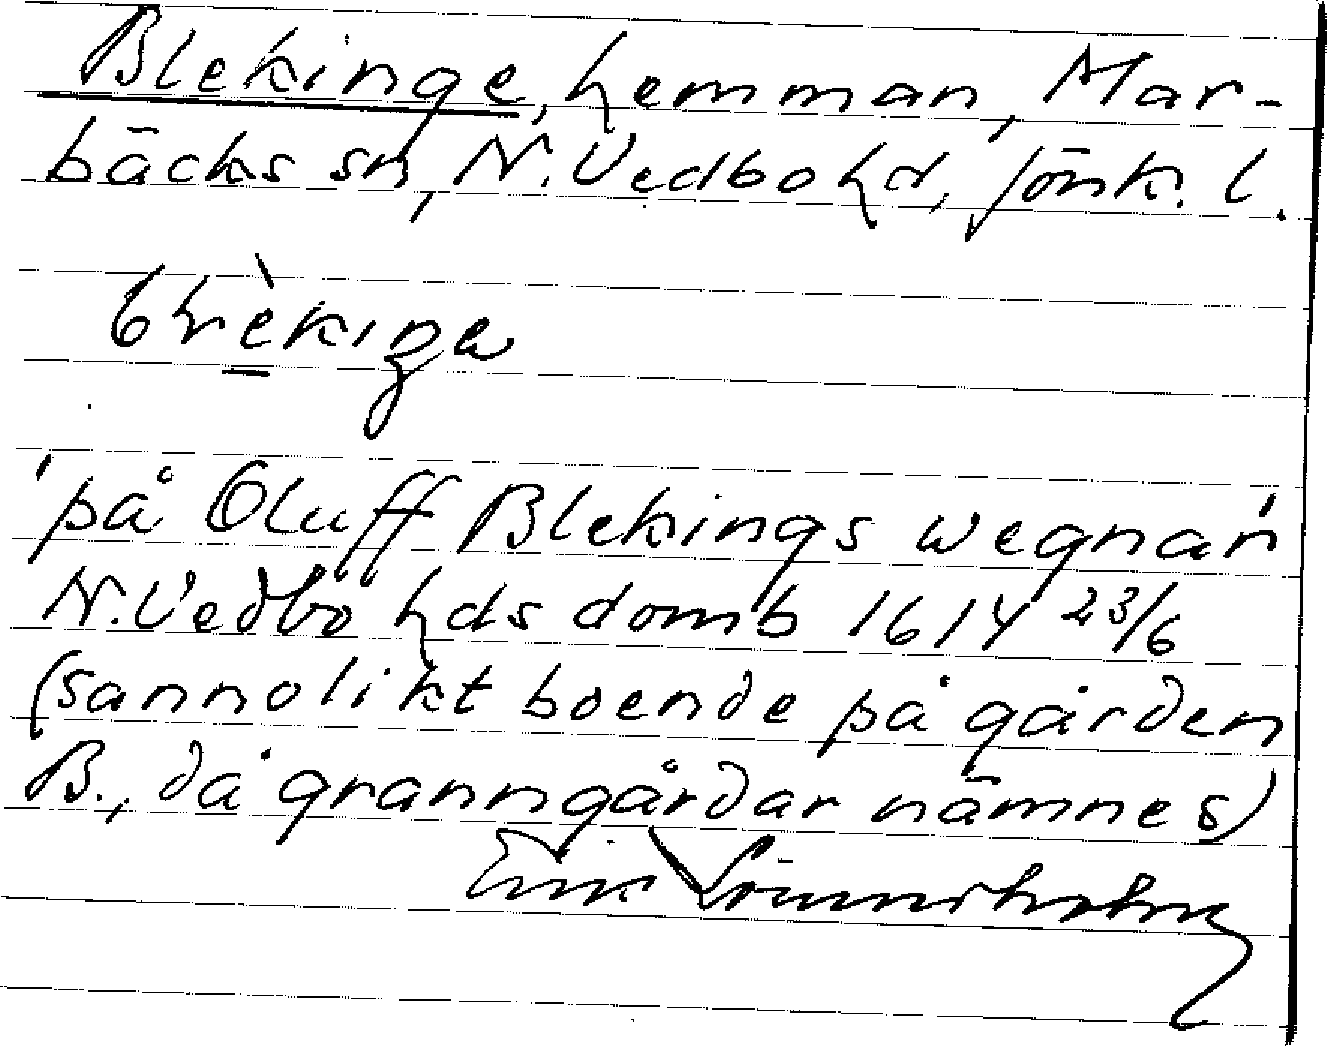 Blekinge, hemman, Mar-
bäcks sn, N. Vedbo hd, Jönk. l.
'på Oluff Blekings wegnar'
N. Vedbo hds domb 1614 23/6
(sannolikt boende på gården
B., då granngårdar nämnes)
Erik